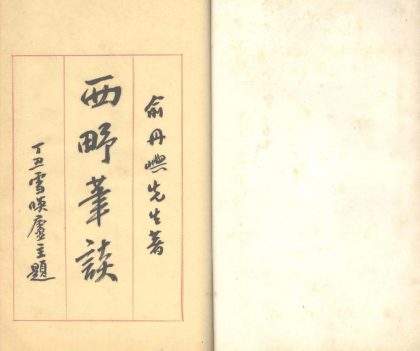 俞丹嶼先生著
西野筆談
丁丑雪映廬主題